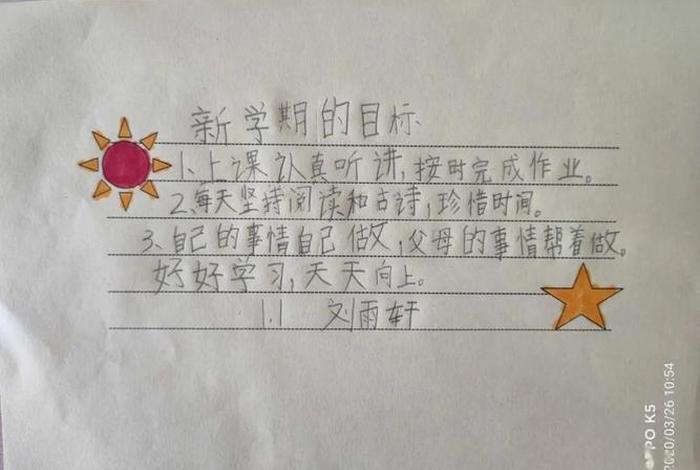 新学期的目标
1、上课认真听讲,按时完成作业。
2、每天坚持阅读和古诗,珍惜时间。
3、自己的事情自己做,父母的事情帮着做。
好好学习,天天向上。
1.1 刘雨轩
PO K5
2020/03/26 10:54